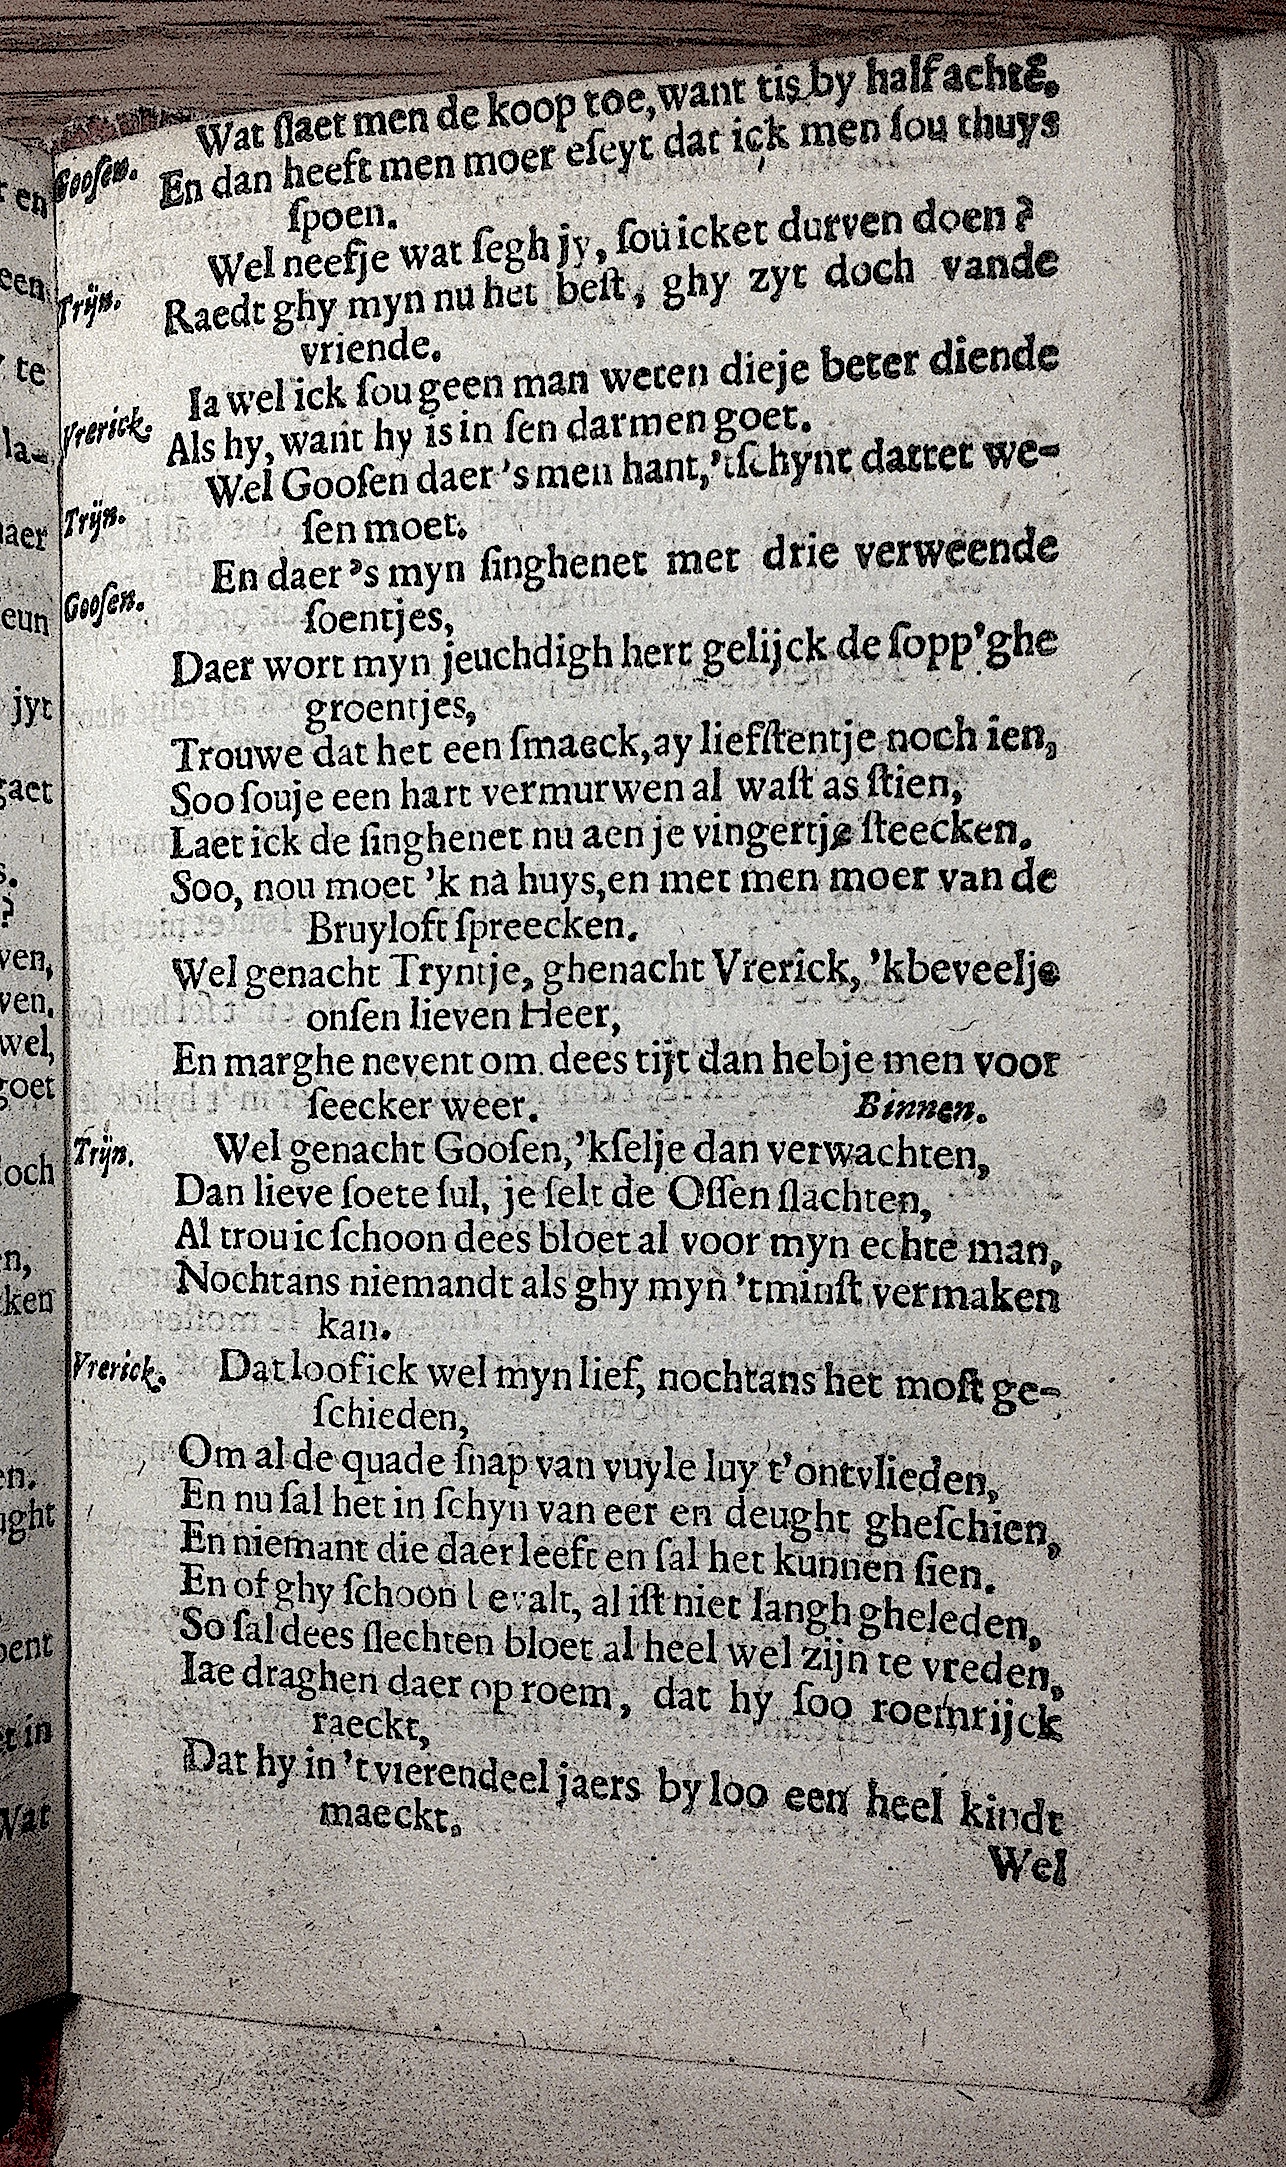 Goosen. Wat slaet men de koop toe, want tis by half achte,
En dan heeft men moer eseyt dat ick men sou thuys
spoen.
Trijn. Wel neefje wat segh jy, sou icket durven doen?
Raedt ghy myn nu het best, ghy zyt doch vande
vriende.
Vrerick. Ia wel ick sou geen man weten dieje beter diende
Als hy, want hy is in sen darmen goet.
Trijn. Wel Goosen daer 's men hant, 'tschynt dattet we-
sen moet.
Goosen. En daer 's myn singhenet met drie verweende
soentjes,
Daer wort myn jeuchdigh hert gelijck de sopp' ghe
groentjes,
Trouwe dat het een smaeck, ay liefstentje noch ien,
Soo souje een hart vermurwen al wast as stien,
Laet ick de singhenet nu aen je vingertje steecken.
Soo, nou moet 'k na huys, en met men moer van de
Bruyloft spreecken.
Wel genacht Tryntje, ghenacht Vrerick, 'k beveelje
onsen lieven Heer,
En marghe nevent om dees tijt dan hebje men voor
seecker weer. Binnen.
Trijn. Wel genacht Goosen, 'kselje dan verwachten,
Dan lieve soete sul, je selt de Ossen slachten,
Al trou ic schoon dees bloet al voor myn echte man,
Nochtans niemandt als ghy myn 'tminst vermaken
kan.
Vrerick. Dat loof ick wel myn lief, nochtans het most ge-
schieden,
Om al de quade snap van vuyle luy t'ontvlieden,
En nu sal het in schyn van eer en deught gheschien,
En niemant die daer leeft en sal het kunnen sien.
En of ghy schoon alt, al ist niet langh gheleden,
So sal dees slechten bloet al heel wel zijn te vreden,
Iae draghen daer op roem, dat hy soo roemrijck
raeckt,
Dat hy in 't vierendeel jaers by loo een heel kindt
maeckt.
Wel